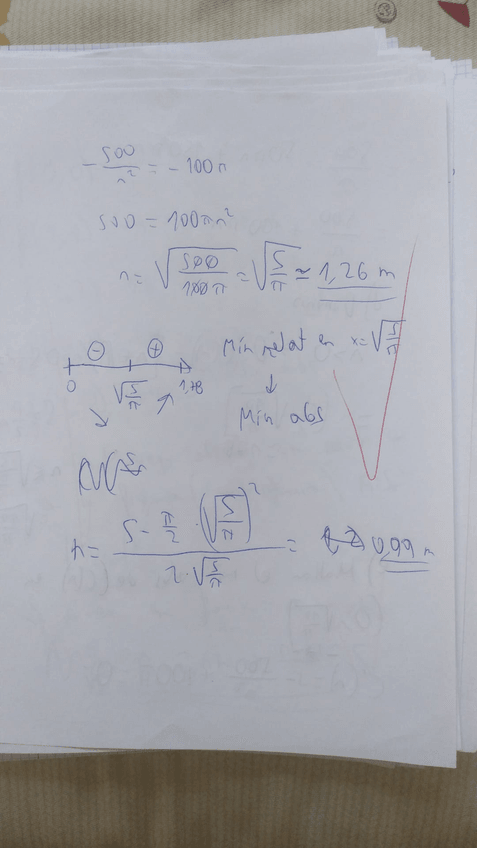 - 500/r² = - 100π
500 = 100πr²
r = √(500/100π) = √(5/π) ≈ 1,26 m
⊖ ⊕ Mín relat en x = √(5/π)
0 √(5/π) 1,78
↘ ↗ ↓
Mín abs
h = (5 - π/2 · (√(5/π))²)/(2 · √(5/π)) = 0,99 m